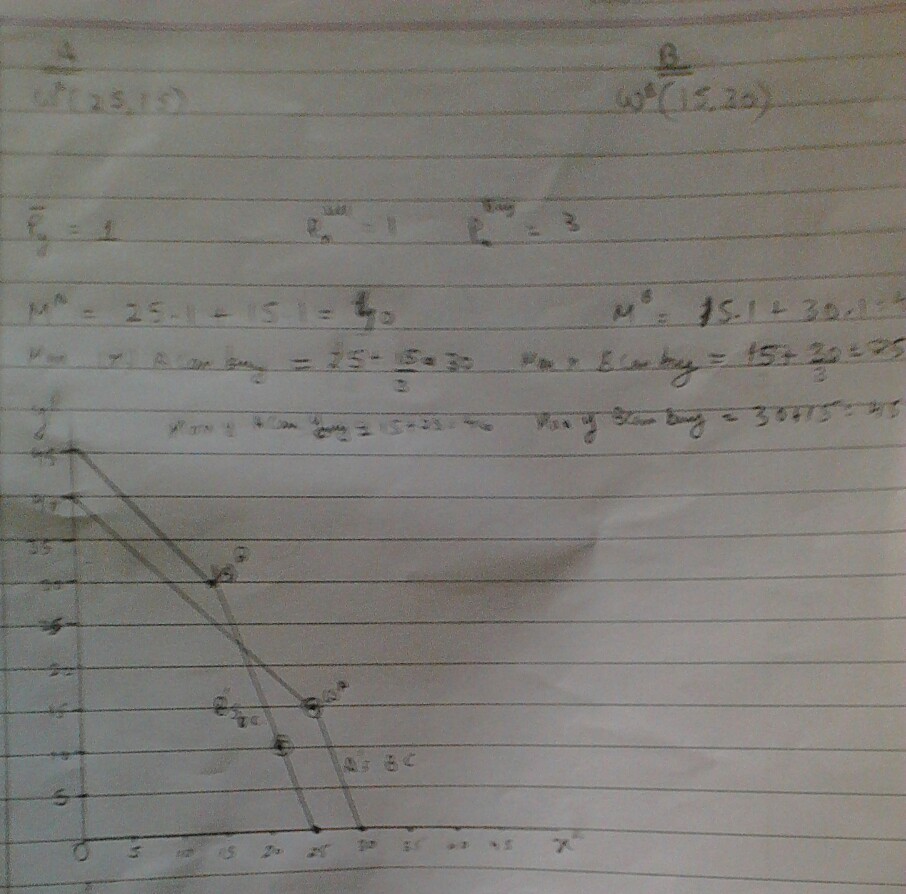 A B
ω^A(25,15) ω^B(15,30)
P̄_y = 1 P_x^sell = 1 P_x^buy = 3
M^A = 25.1 + 15.1 = 40 M^B = 15.1 + 30.1 =
Max x A can buy = 25 + 15/3 = 30 Max x B can buy = 15 + 30/3 = 25
Max y A can buy = 15+25=40 Max y B can buy = 30+15=45
y
45
40
35
30 ω^B
25
20
15 ω^A
10
A's BC
5
0 5 10 15 20 25 30 35 40 45 x